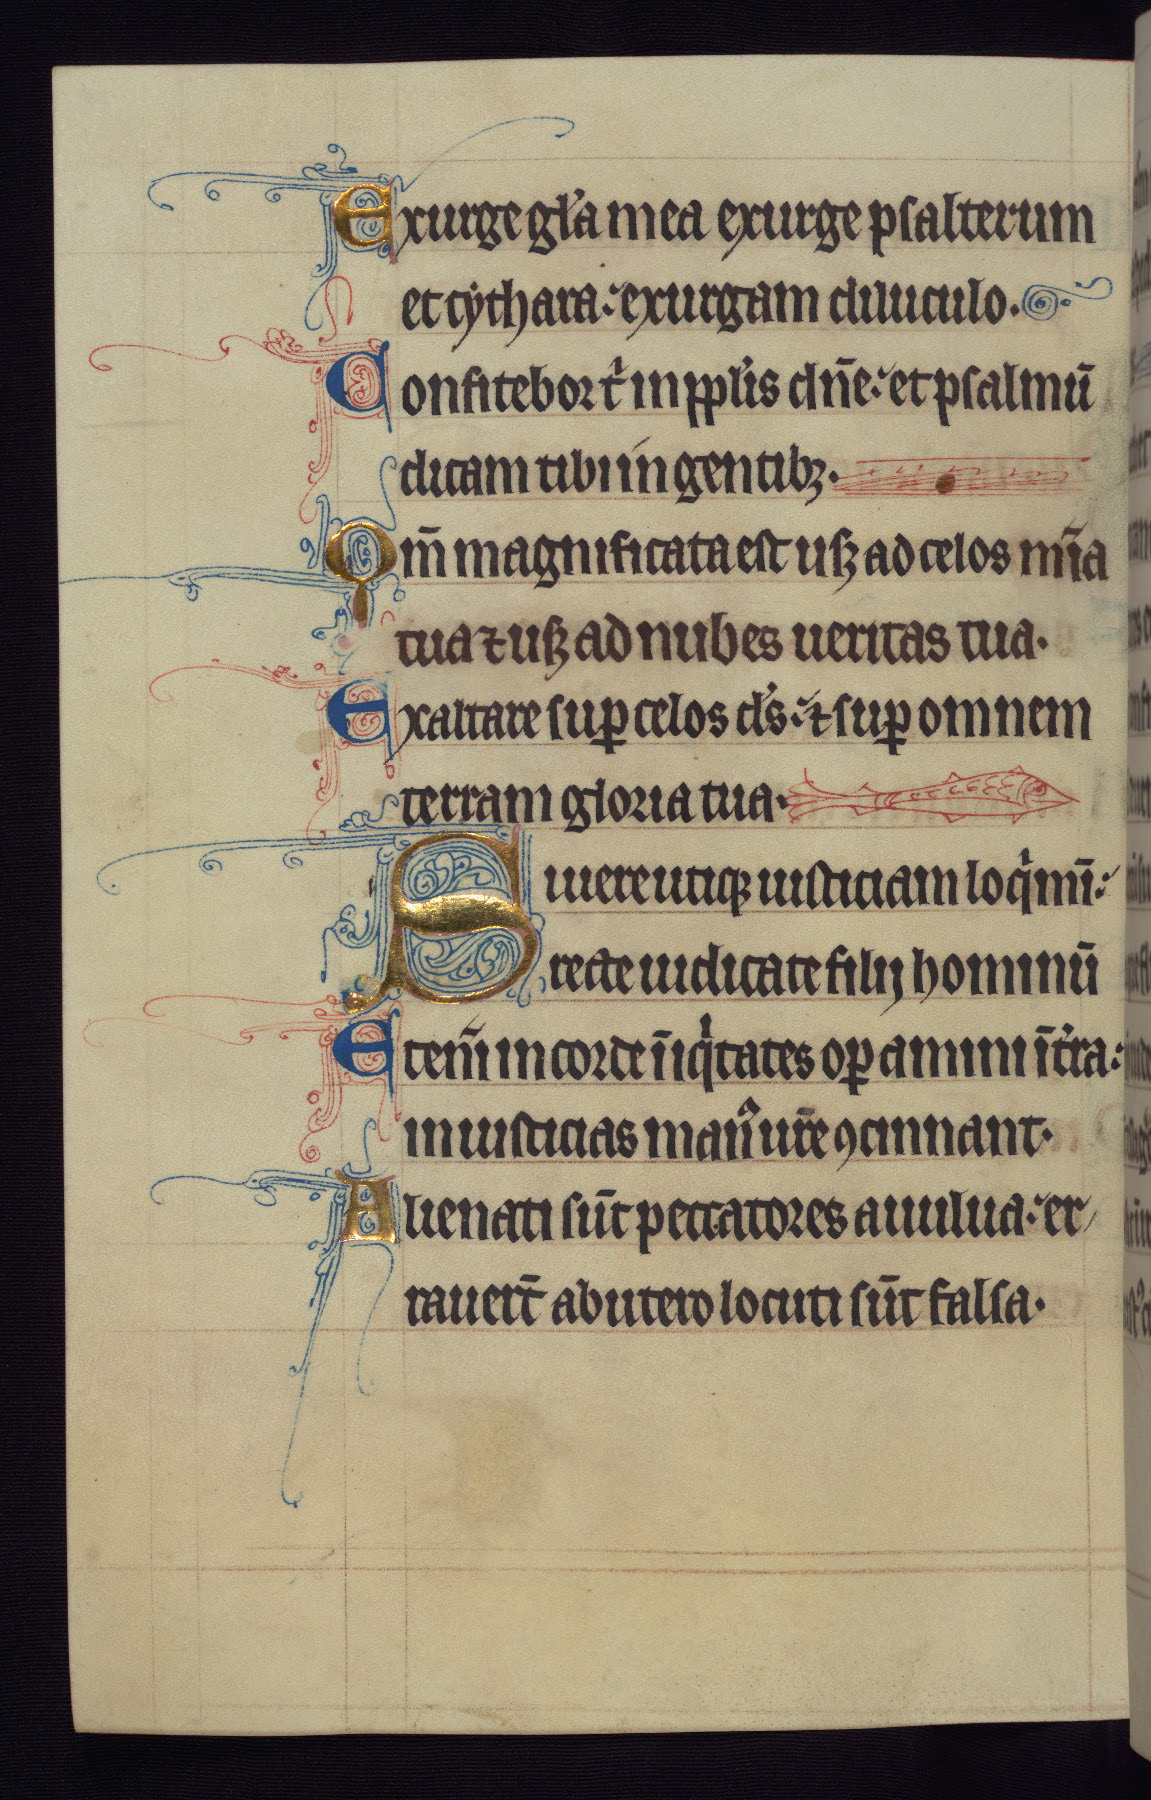 Exurge gl'a mea exurge psalterum
et cythara: exurgam diluculo.
Confitebor t' in ppl'is dn̄e: et psalmū
dicam tibi in gentibꝫ.
Qm̄ magnificata est usꝫ ad celos mīa
tua ⁊ usꝫ ad nubes ueritas tua.
Exaltare suꝑ celos d's: ⁊ suꝑ omnem
terram gloria tua.
Si uere utiqꝫ iusticiam loq'mī:
recte iudicate filij hominū
Etenī in corde īiq'tates oꝑamini ī t'ra:
iniusticias man' ur̄e ꝯcinnant.
Alienati sūt peccatores a uulua: er/
rauerūt ab utero locuti sūt falsa.